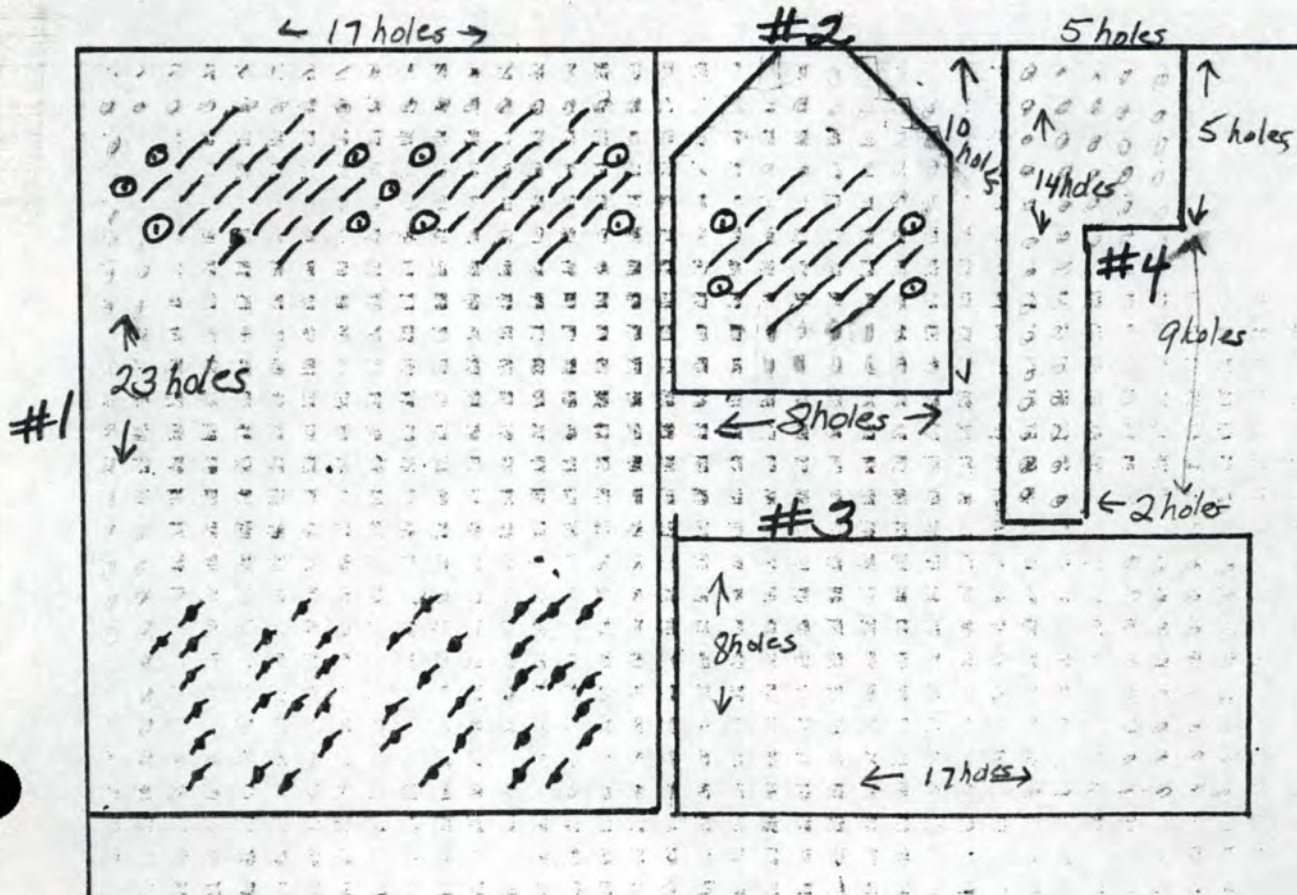 ← 17 holes →
#2
5 holes
10 holes
5 holes
14 holes
#4
9 holes
23 holes
#1
← 8 holes →
← 2 holes
#3
8 holes
← 17 holes →